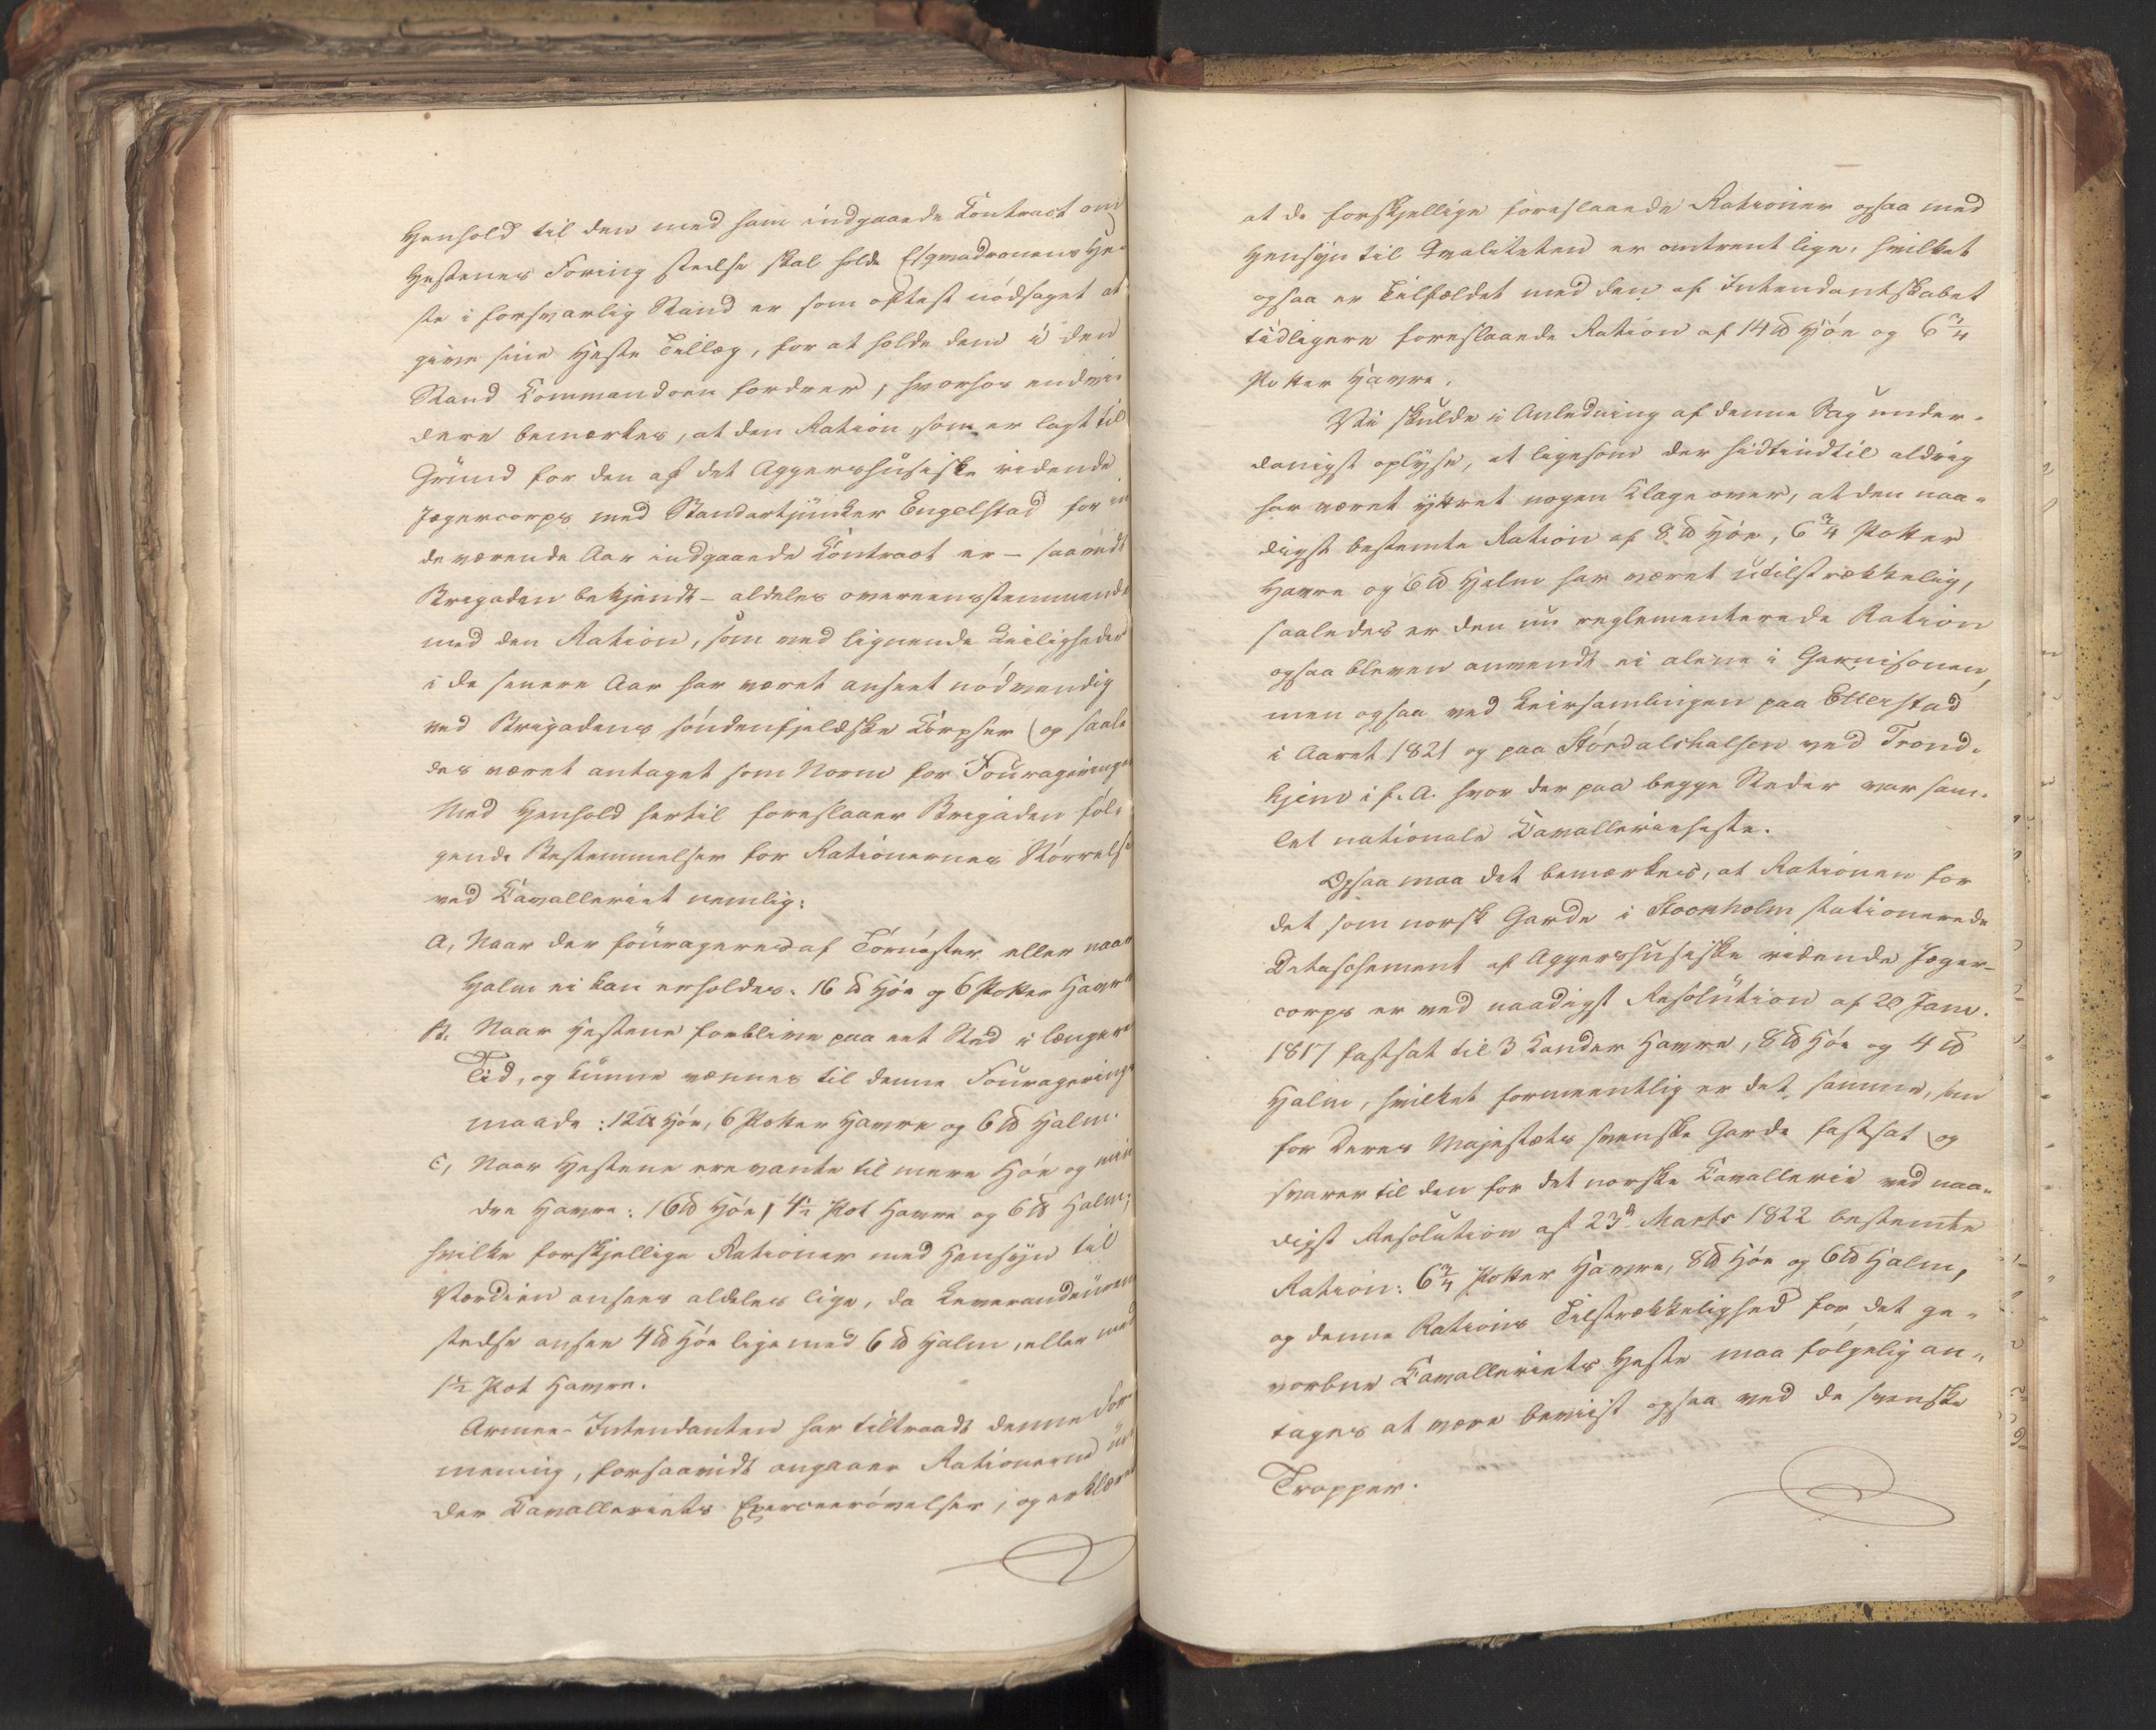 Henhold til den med ham indgaaede Contract om
Hestenes Foring stedse skal holde Esqvadronens He-
ste i forsvarlig Stand er som oftest nødsaget at
give sine Heste Tillæg, for at holde dem i den
Stand Commandoen fordrer, hvorhos endvi-
dere bemærkes, at den Ration, som er lagt til
Grund for den af det Aggershusiske ridende
Jægercorps med Standartjunker Engelstad for in
deværende Aar indgaaede Contract er – saavidt
Brigaden bekjendt – aldeles overeensstemmende
med den Ration, som ved lignende Leiligheder
i de senere Aar har været anseet nødvendig
ved Brigadens søndenfjeldske Corpser (og saale
des været antaget som Norm for Fourageringen
Med Henhold hertil foreslaaer Brigaden føl-
gende Bestemmelser for Rationernes Størrelse
ved Cavalleriet nemlig:
A, Naar der fourageres af Tornister eller naar
Halm ei kan erholdes: 16 ℔ Høe og 6 Potter Havre
B, Naar Hestene forblive paa eet Sted i længere
Tid, og kunne vænnes til denne Fouragerings
maade: 12 ℔ Høe, 6 Potter Havre og 6 ℔ Halm.
C, Naar Hestene ere vante til mere Høe og min
dre Havre: 16 ℔ Høe, 4½ Pot Havre og 6 ℔ Halm;
hvilke forskjellige Rationer med Hensyn til
Værdien ansees aldeles lige, da Leverandeuren
stedse ansee 4 ℔ Høe lige med 6 ℔ Halm, eller med
1½ Pot Havre.
Armee-Intendanten har tiltraadt denne For
mening, forsaavidt angaaer Rationerne un
der Cavalleriets Exerceerøvelser, og erklæret
at de forskjellige foreslaaede Rationer ogsaa med
Hensyn til Qvaliteten er omtrent lige, hvilket
ogsaa er Tilfældet med den af Intendantskabet
tidligere foreslaaede Ration af 14 ℔ Høe og 6¾
Potter Havre.
Vi skulde i Anledning af denne Sag under-
danigst oplyse, at ligesom der hidtindtil aldrig
har været yttret nogen Klage over, at den naa-
digst bestemte Ration af 8 ℔ Høe, 6¾ Potter
Havre og 6 ℔ Halm har været utilstrækkelig,
saaledes er den nu reglementerede Ration
ogsaa bleven anvendt ei alene i Garnisonen,
men ogsaa ved Leirsamlingen paa Etterstad
i Aaret 1821 og paa Størdalshalsen ved Trond-
hjem i f. A. hvor der paa begge Steder var sam-
let nationale Cavalleriheste.
Ogsaa maa det bemærkes, at Rationen for
det som norsk Garde i Stockholm stationerede
Detaschement af Aggershusiske ridende Jæger-
corps er ved naadigst Resolution af 20 Janv.
1817 fastsat til 3 Kander Havre, 8 ℔ Høe og 4 ℔
Halm, hvilket formeentlig er det samme, som
for Deres Majestæts svenske Garde fastsat og
svarer til den for det norske Cavallerie ved naa-
digst Resolution af 23de Marts 1822 bestemte
Ration: 6¾ Potter Havre, 8 ℔ Høe og 6 ℔ Halm,
og denne Rations Tilstrækkelighed for det ge-
vorbne Cavalleriets Heste maa følgelig an-
tages at være beviist ogsaa ved de svenske
Tropper.